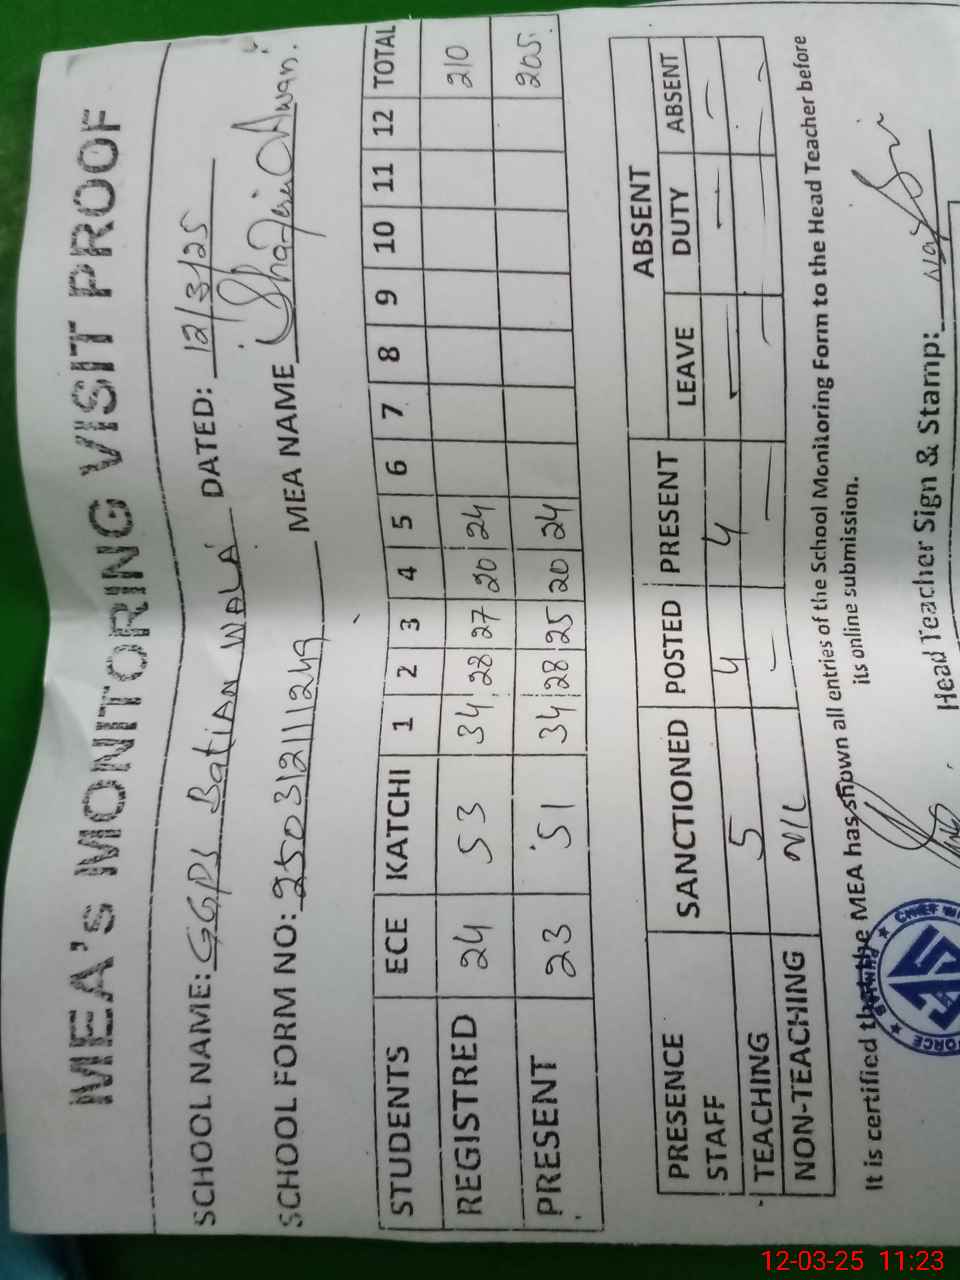 MEA's MONITORING VISIT PROOF
SCHOOL NAME: GGPS Batian WALA DATED: 12/3/25
SCHOOL FORM NO: 25031211249 MEA NAME Awan
STUDENTS ECE KATCHI 1 2 3 4 5 6 7 8 9 10 11 12 TOTAL
REGISTRED 24 53 34 28 27 20 24 210
PRESENT 23 51 34 28 25 20 24 205
PRESENCE STAFF SANCTIONED POSTED PRESENT ABSENT
LEAVE DUTY ABSENT
TEACHING 5 4 4 — — —
NON-TEACHING NIL — — — — —
It is certified that the MEA has shown all entries of the School Monitoring Form to the Head Teacher before
its online submission.
Head Teacher Sign & Stamp:
FORCE
CHIEF
12-03-25 11:23